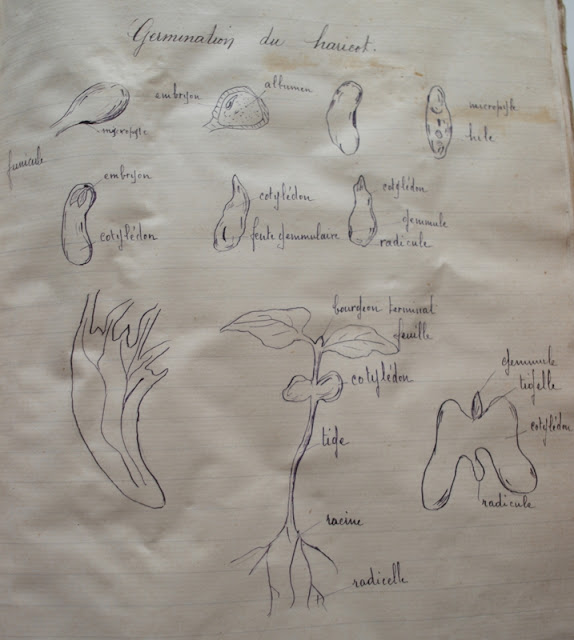 Germination du haricot.
embryon
albumen
micropyle
micropyle
hile
funicule
embryon
cotylédon
cotylédon
fente gemmulaire
cotylédon
gemmule
radicule
bourgeon terminal
feuille
cotylédon
tige
racine
radicelle
gemmule
tigelle
cotylédon
radicule